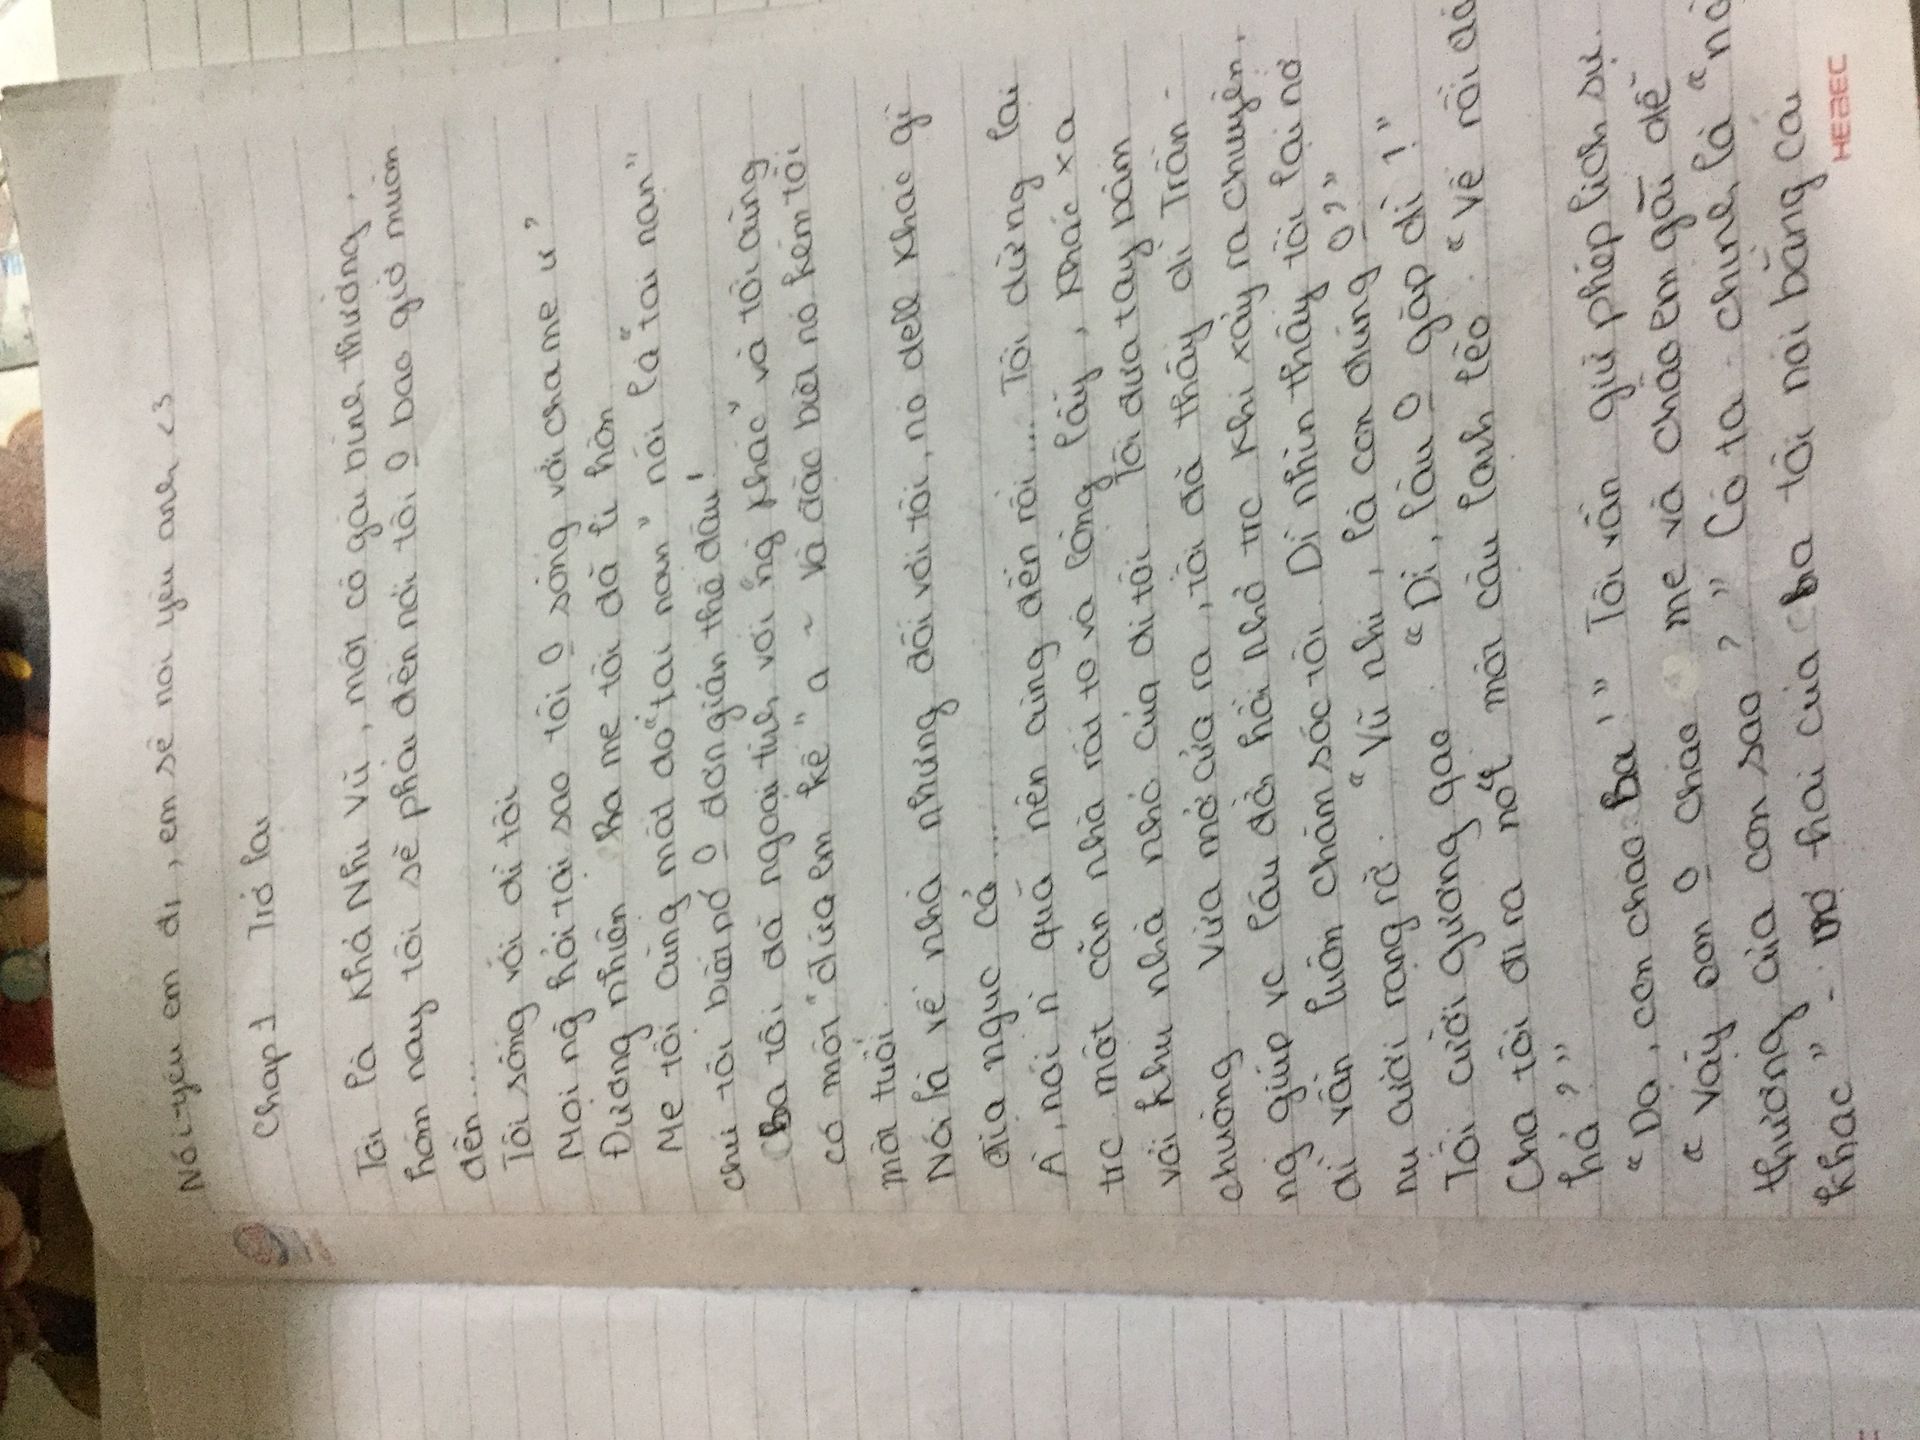 Nói yêu em đi, em sẽ nói yêu anh <3
Chap 1 Trở lại
Tôi là Khả Nhi Vũ, một cô gái bình thường.
hôm nay tôi sẽ phải đến nơi tôi 0 bao giờ muốn
đến...
Tôi sống với dì tôi
Mọi ng hỏi tại sao tôi 0 sống với cha mẹ ư?
Đương nhiên ba mẹ tôi đã li hôn
Mẹ tôi cũng mất do "tai nạn" nói là "tai nạn"
chứ tôi biết nó 0 đơn giản thế đâu!
Ba tôi đã ngoại tình với "ng khác" và tôi cũng
có một "đứa em kế" a ~ Và đặc biệt nó kém tôi
một tuổi
Nói là về nhà nhưng đối với tôi, nó dell khác gì
địa ngục cả...
À, nói n quá nên cũng đến rồi... Tôi dừng lại
trc một căn nhà rất to và lộng lẫy, khác xa
với khu nhà nhỏ của dì tôi. Tôi đưa tay bấm
chuông. Vừa mở cửa ra, tôi đã thấy dì Trần -
ng giúp vc lâu đời hồi nhỏ trc khi xảy ra chuyện.
dì vẫn luôn chăm sóc tôi. Dì nhìn thấy tôi lại nở
nụ cười rạng rỡ. "Vũ nhi, là con đúng 0?"
Tôi cười gượng gạo. "Dì, lâu 0 gặp dì!"
Cha tôi đi ra nở một câu lạnh lẽo. "Về rồi đó
hả?"
"Dạ, con chào ba!" Tôi vẫn giữ phép lịch sự.
"Vậy con 0 chào mẹ và chào em gái dễ
thương của con sao?" Cô ta chính là "ng
khác" - vợ hai của ba tôi nói bằng cái
HEEEC